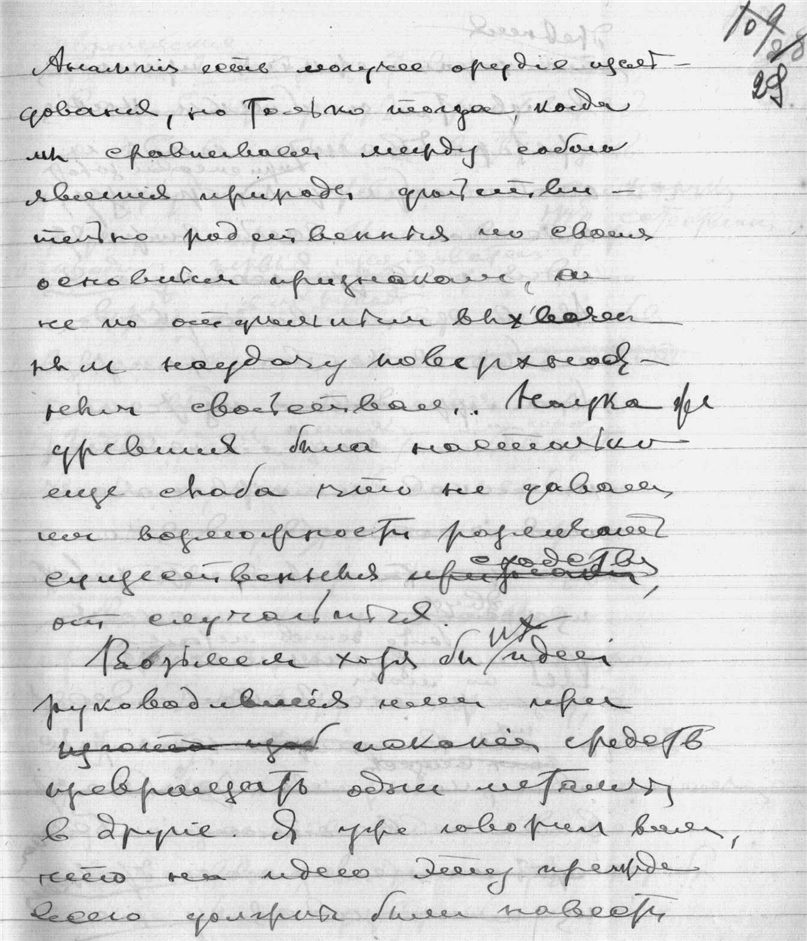 109/28
29
Аналогія есть могучее орудіе изслѣ-
дованія, но только тогда, когда
мы сравниваемъ между собою
явленія природы дѣйстви-
тельно родственныя по своимъ
основнымъ признакамъ, а
не по отдѣльнымъ выхвачен-
нымъ наудачу поверхност-
нымъ свойствамъ... Наука же
древнихъ была настолько
еще слаба что не давала
им возможности различать
существенныя сходства,
от случайныхъ.
Возьмемъ хотя бы их идеи
руководившія ими при
исканіи средствъ
превращать одни металлы
в другіе Я уже говорил вамъ,
что на идею эту прежде
всего должны были навести